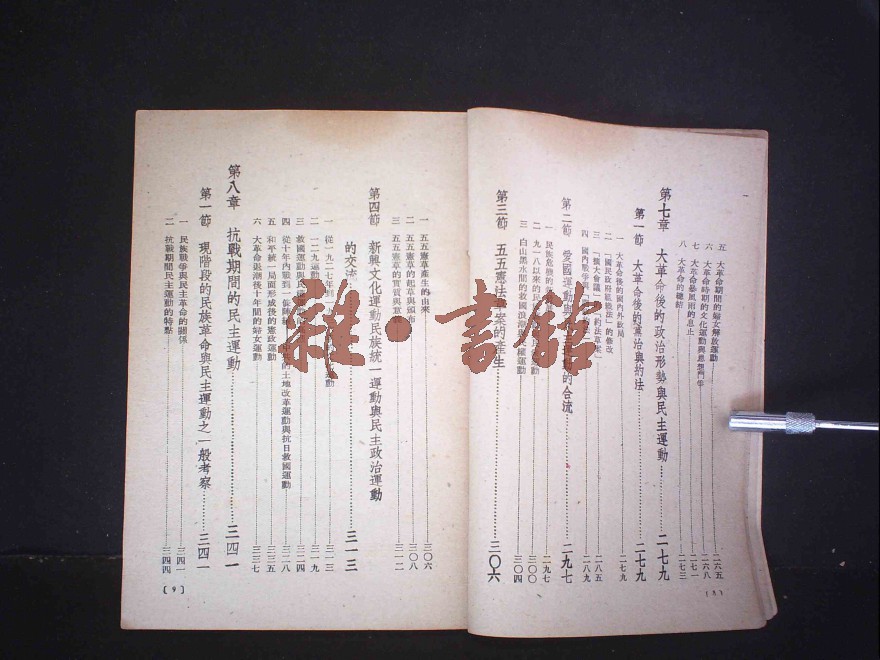 五 大革命期間的婦女解放運動 二六五
六 大革命時期的文化運動與思想鬥爭 二六八
七 大革命暴風雨的息止 二七一
八 大革命的總結 二七三
第七章 大革命後的政治形勢與民主運動 二七九
第一節 大革命後的黨治與約法 二七九
一 大革命後的國內外政局 二七九
二 「國民政府組織法」的修改
三 「擴大會議」「約法草案」 二八五
四 國內戰爭 二八九
第二節 愛國運動與 的合流 二九七
一 民族危機的 二九七
二 九一八以來的民 運動 三〇〇
三 白山黑水間的救國浪潮與 權運動 三〇四
第三節 五五憲法草案的產生 三〇六
(8)
一 五五憲草產生的由來 三〇六
二 五五憲草的起草與頒布 三〇八
三 五五憲草的實質與 三一二
第四節 新興文化運動民族統一運動與民主政治運動
的交流 三一三
一 從一九二七年到一 運動
二 一二九運動 三一九
三 救國運動與 三二四
四 從十年內戰到 的土地改革運動與抗日救國運動 三二八
五 和平統一局面形成後的憲政運動 三三五
六 大革命退潮後十年間的婦女運動 三三七
第八章 抗戰期間的民主運動 三四一
第一節 現階段的民族革命與民主運動之一般考察 三四一
一 民族戰爭與民主革命的關係 三四一
二 抗戰期間民主運動的特點 三四四
(9)
雜·書館